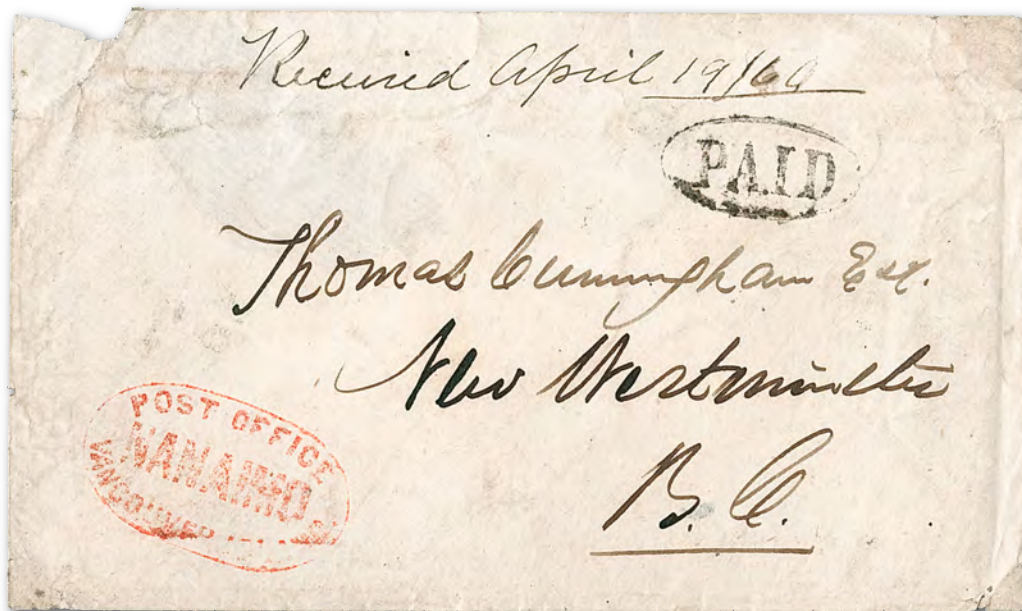 Received April 19/69
PAID
Thomas Cunningham Esq.
New Westminster
B. C.
POST OFFICE
NANAIMO
VANCOUVER